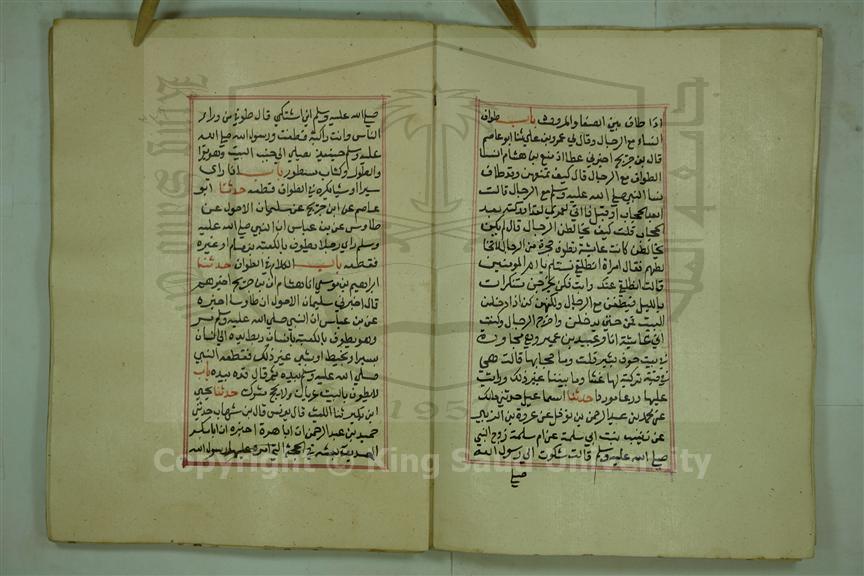 اذا طاف بين الصفا والمروة باب طواف
النساء مع الرجال وقال لي عمرو بن علي ثنا ابو عاصم
قال بن جريج اخبرني عطا اذ منع بن هشام النسا
الطواف مع الرجال قال كيف تمنعهن وقد طاف
نسا النبي صلي الله عليه وسلم مع الرجال قلت
ابعد الحجاب او قبل قال اي لعمري لقد ادركته بعد
الحجاب قلت كيف يخالطن الرجال قال لم يكن
يخالطن كانت عائشة تطوف حجرة من الرجال لا تخا
لطهم فقالت امراة انطلقي نستلم يا ام المومنين
قالت انطلقي عنك وابت يخرجن متنكرات
بالليل فيطفن مع الرجال ولكنهن كن اذا دخلن
البيت قمن حتي يدخلن واخرج الرجال وكنت
اتي عائشة انا وعبيد بن عمير وهي مجاورة
في جوف ثبير قلت وما حجابها قالت هي
في قبة تركية لها غشا وما بيننا غير ذلك ورايت
عليها درعا موردا حدثنا اسماعيل حدثني مالك
عن محمد بن عبد الرحمن بن نوفل عن عروة بن الزبير
عن زينب بنت ابي سلمة عن ام سلمة زوج النبي
صلي الله عليه وسلم قالت شكوت الي رسول الله
صلي
صلي الله عليه وسلم اني اشتكي قال طوفي من وراء
الناس وانت راكبة فطفت ورسول الله صلي الله
عليه وسلم حينئذ يصلي الي جنب البيت وهو يقرا
والطور وكتاب مسطور باب اذا راي
سيرا او شيا يكره في الطواف قطعه حدثنا ابو
عاصم عن ابن جريج عن سليمان الاحول عن
طاوس عن بن عباس ان النبي صلي الله عليه
وسلم راي رجلا يطوف بالكعبة بزمام او غيره
فقطعه باب الكلام في الطواف حدثنا
ابراهيم بن موسي انا هشام ان بن جريج اخبرهم
قال اخبرني سليمان الاحول ان طاوسا اخبره
عن بن عباس ان النبي صلي الله عليه وسلم مر
وهو يطوف بالكعبة بانسان ربط يده الي انسان
بسير او بخيط او بشي غير ذلك فقطعه النبي
صلي الله عليه وسلم بيده ثم قال قده بيده باب
لا يطوف بالبيت عريان ولا يحج مشرك حدثنا يحيي
ابن بكير ثنا الليث قال يونس قال بن شهاب حدثني
حميد بن عبد الرحمن ان ابا هريرة اخبره ان ابا بكر
الصديق بعثه في الحجة التي امره عليها رسول الله
Copyright © King Saud University